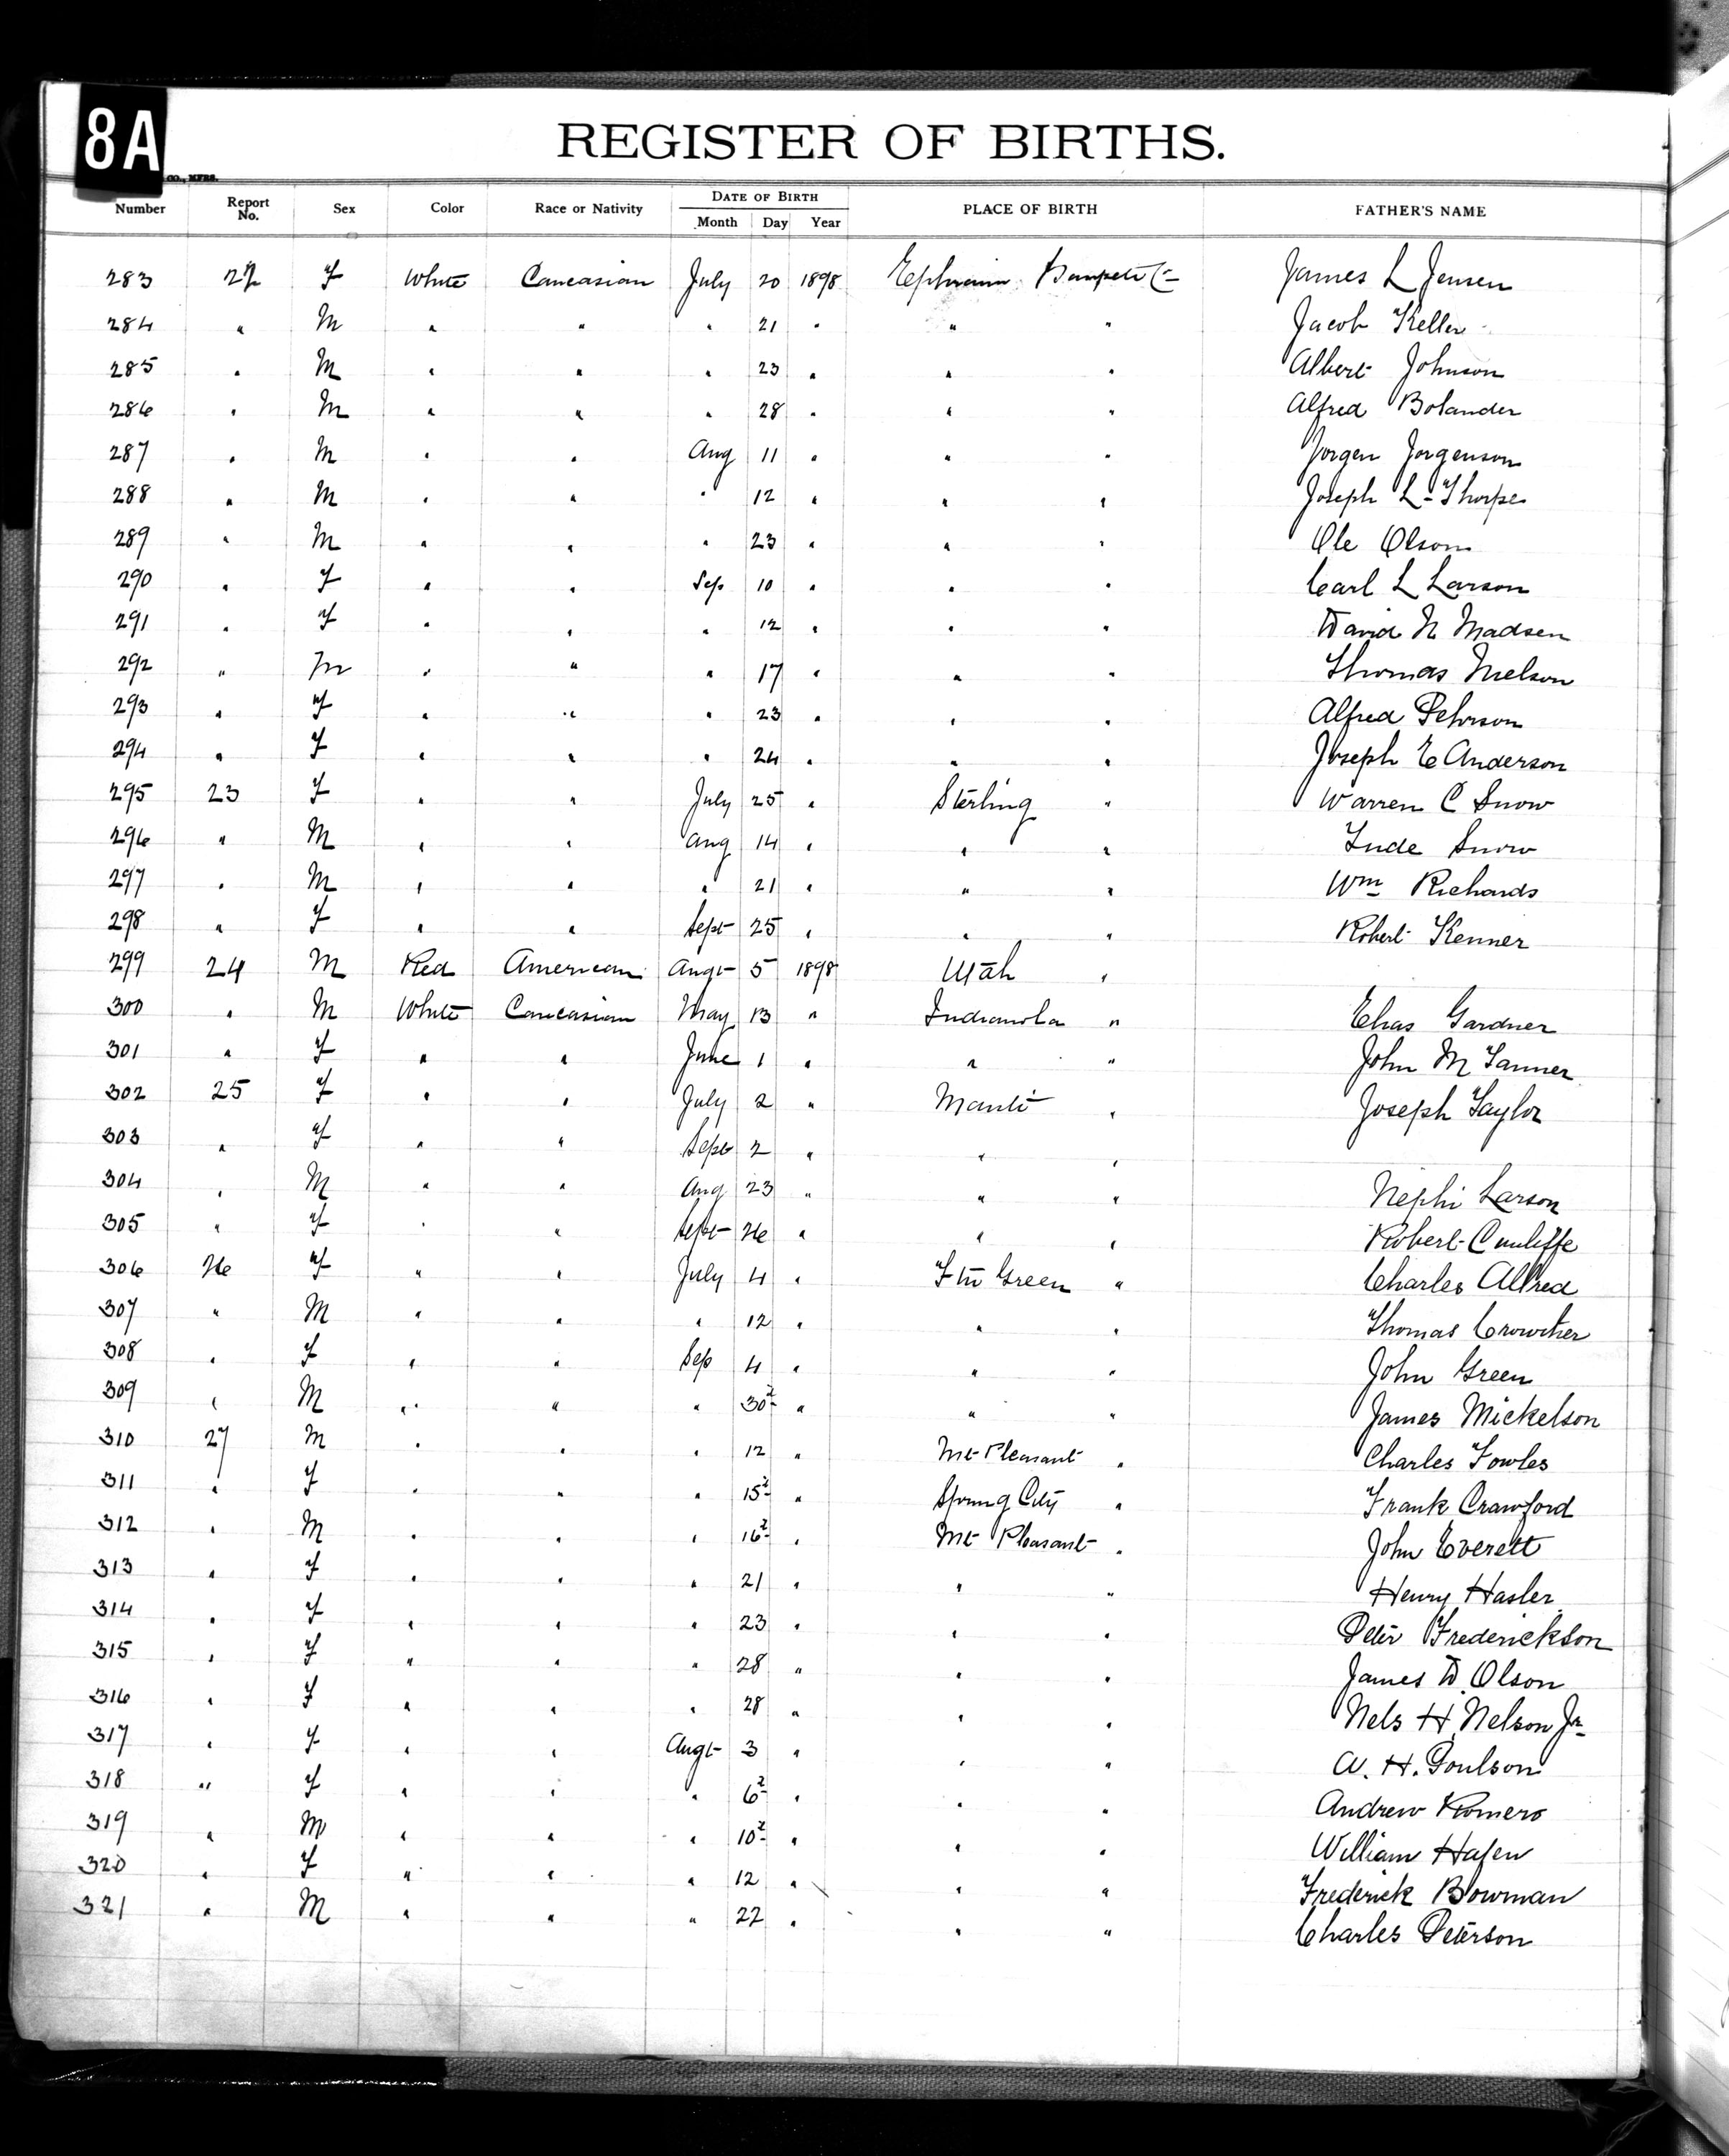 8A
CO., MFRS.
REGISTER OF BIRTHS.
Number Report No. Sex Color Race or Nativity DATE OF BIRTH Month Day Year PLACE OF BIRTH FATHER'S NAME
283 22 F White Caucasian July 20 1898 Ephraim Sanpete Co James L Jensen
284 " M " " " 21 " " " Jacob Keller
285 " M " " " 23 " " " Albert Johnson
286 " M " " " 28 " " " Alfred Bolander
287 " M " " Aug 11 " " " Jorgen Jorgenson
288 " M " " " 12 " " " Joseph L Thorpe
289 " M " " " 23 " " " Ole Olson
290 " F " " Sep 10 " " " Carl L Larson
291 " F " " " 12 " " " David N Madsen
292 " M " " " 17 " " " Thomas Nielson
293 " F " " " 23 " " " Alfred Pehrson
294 " F " " " 24 " " " Joseph E Anderson
295 23 F " " July 25 " Sterling " Warren C Snow
296 " M " " Aug 14 " " " Snow
297 " M " " " 21 " " " Wm Richards
298 " F " " Sept 25 " " " Robert Kenner
299 24 M Red American Augt 5 1898 Utah "
300 " M White Caucasian May 13 " Indianola " Elias Gardner
301 " F " " June 1 " " " John M Tanner
302 25 F " " July 2 " Manti " Joseph Taylor
303 " F " " Sept 2 " " "
304 " M " " Aug 23 " " " Nephi Larson
305 " F " " Sept 26 " " " Robert Cunliffe
306 26 F " " July 4 " Ftn Green " Charles Allred
307 " M " " " 12 " " " Thomas Crowther
308 " F " " Sep 4 " " " John Green
309 " M " " " 30 " " " James Mickelson
310 27 M " " " 12 " Mt Pleasant " Charles Fowles
311 " F " " " 15 " Spring City " Frank Crawford
312 " M " " " 16 " Mt Pleasant " John Everett
313 " F " " " 21 " " " Henry Hasler
314 " F " " " 23 " " " Peter Frederickson
315 " F " " " 28 " " " James D. Olson
316 " F " " " 28 " " " Nels H. Nelson Jr
317 " F " " Augt 3 " " " A. H. Poulson
318 " F " " " 6 " " " Andrew Romero
319 " M " " " 10 " " " William Hafen
320 " F " " " 12 " " " Frederick Bowman
321 " M " " " 22 " " " Charles Peterson